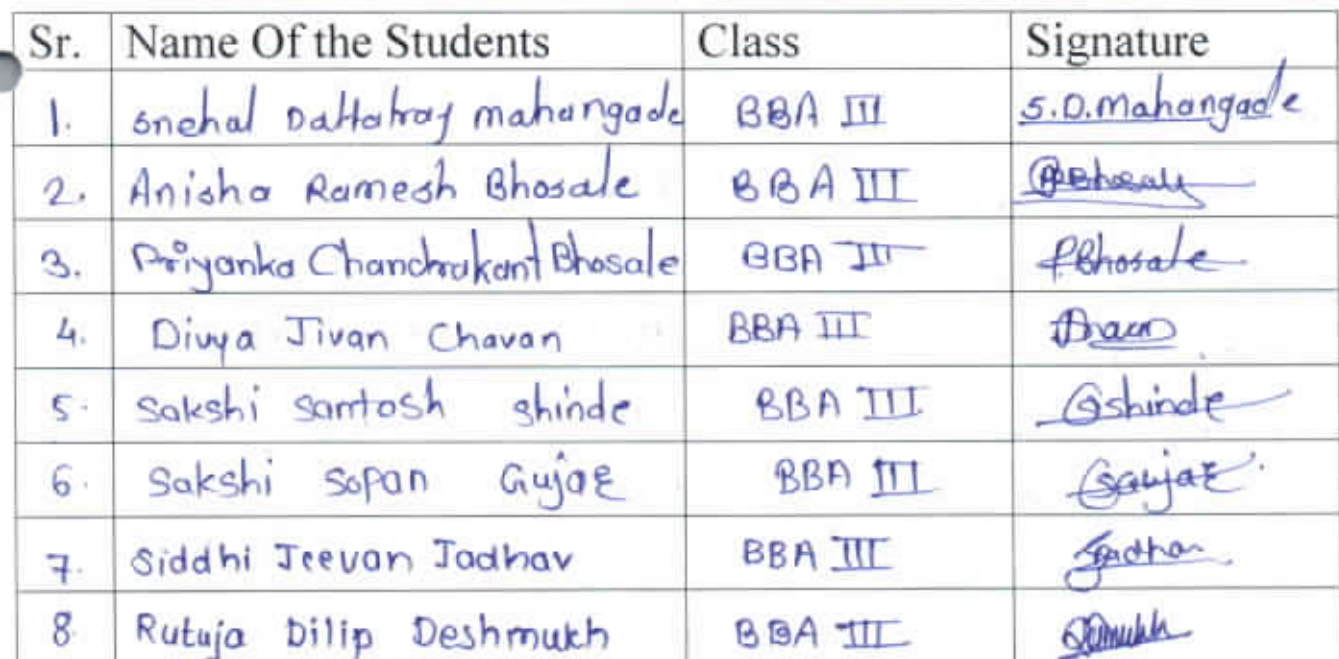 Sr. Name Of the Students Class Signature
1. Snehal Dattatray mahangade BBA III S.D.Mahangade
2. Anisha Ramesh Bhosale BBA III
3. Priyanka Chandrakant Bhosale BBA III PBhosale
4. Divya Jivan Chavan BBA III
5. Sakshi Santosh Shinde BBA III Sshinde
6. Sakshi Sopan Gujar BBA III SGujar
7. Siddhi Jeevan Jadhav BBA III
8 Rutuja Dilip Deshmukh BBA III